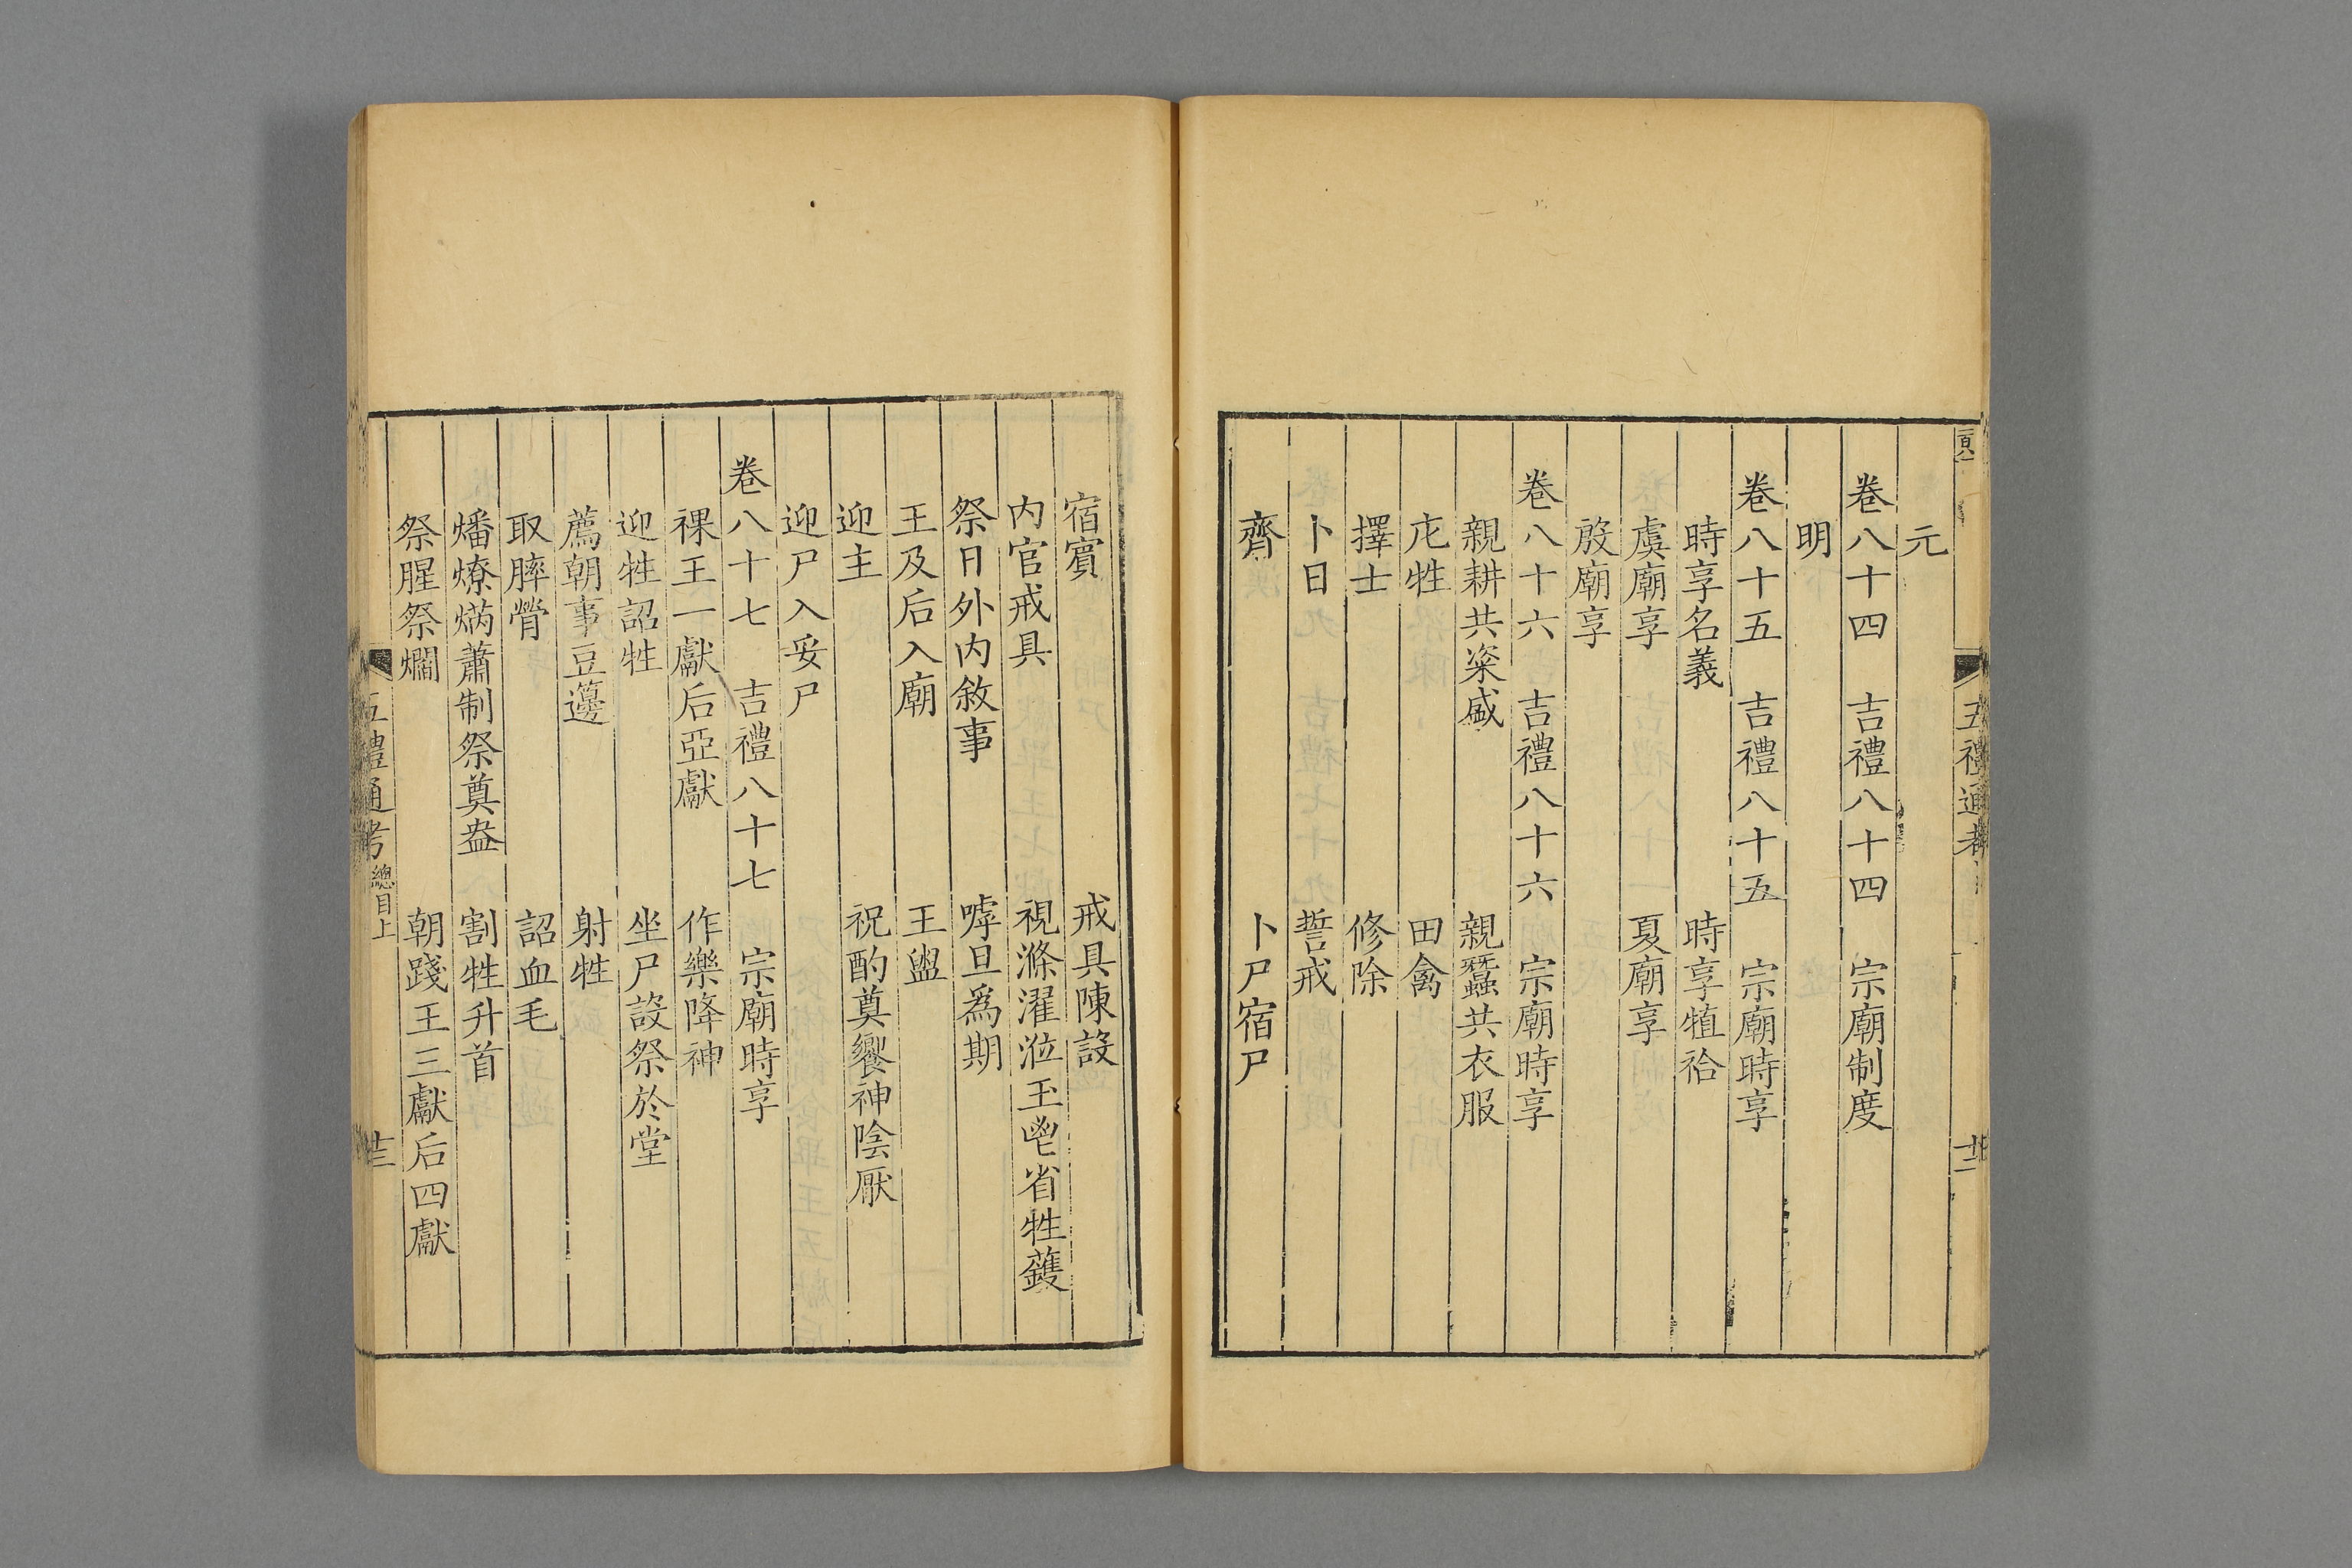 五禮通考
元
卷八十四　吉禮八十四　宗廟制度
明
卷八十五　吉禮八十五　宗廟時享
時享名義　時享犆祫
虞廟享　夏廟享
殷廟享
卷八十六　吉禮八十六　宗廟時享
親耕共粢盛　親蠶共衣服
庀牲　田禽
擇士　修除
卜日　誓戒
齊　卜尸宿尸
宿賓　戒具陳設
内官戒具　視滌濯涖玉鬯省牲鑊
祭日外内敘事　嘑旦爲期
王及后入廟　王盥
迎主　祝酌奠饗神陰厭
迎尸入妥尸
卷八十七　吉禮八十七　宗廟時享
祼王一獻后亞獻　作樂降神
迎牲詔牲　坐尸設祭於堂
薦朝事豆籩　射牲
取膟膋　詔血毛
燔燎焫蕭制祭奠盎　割牲升首
祭腥祭爓　朝踐王三獻后四獻
五禮通考　總目上